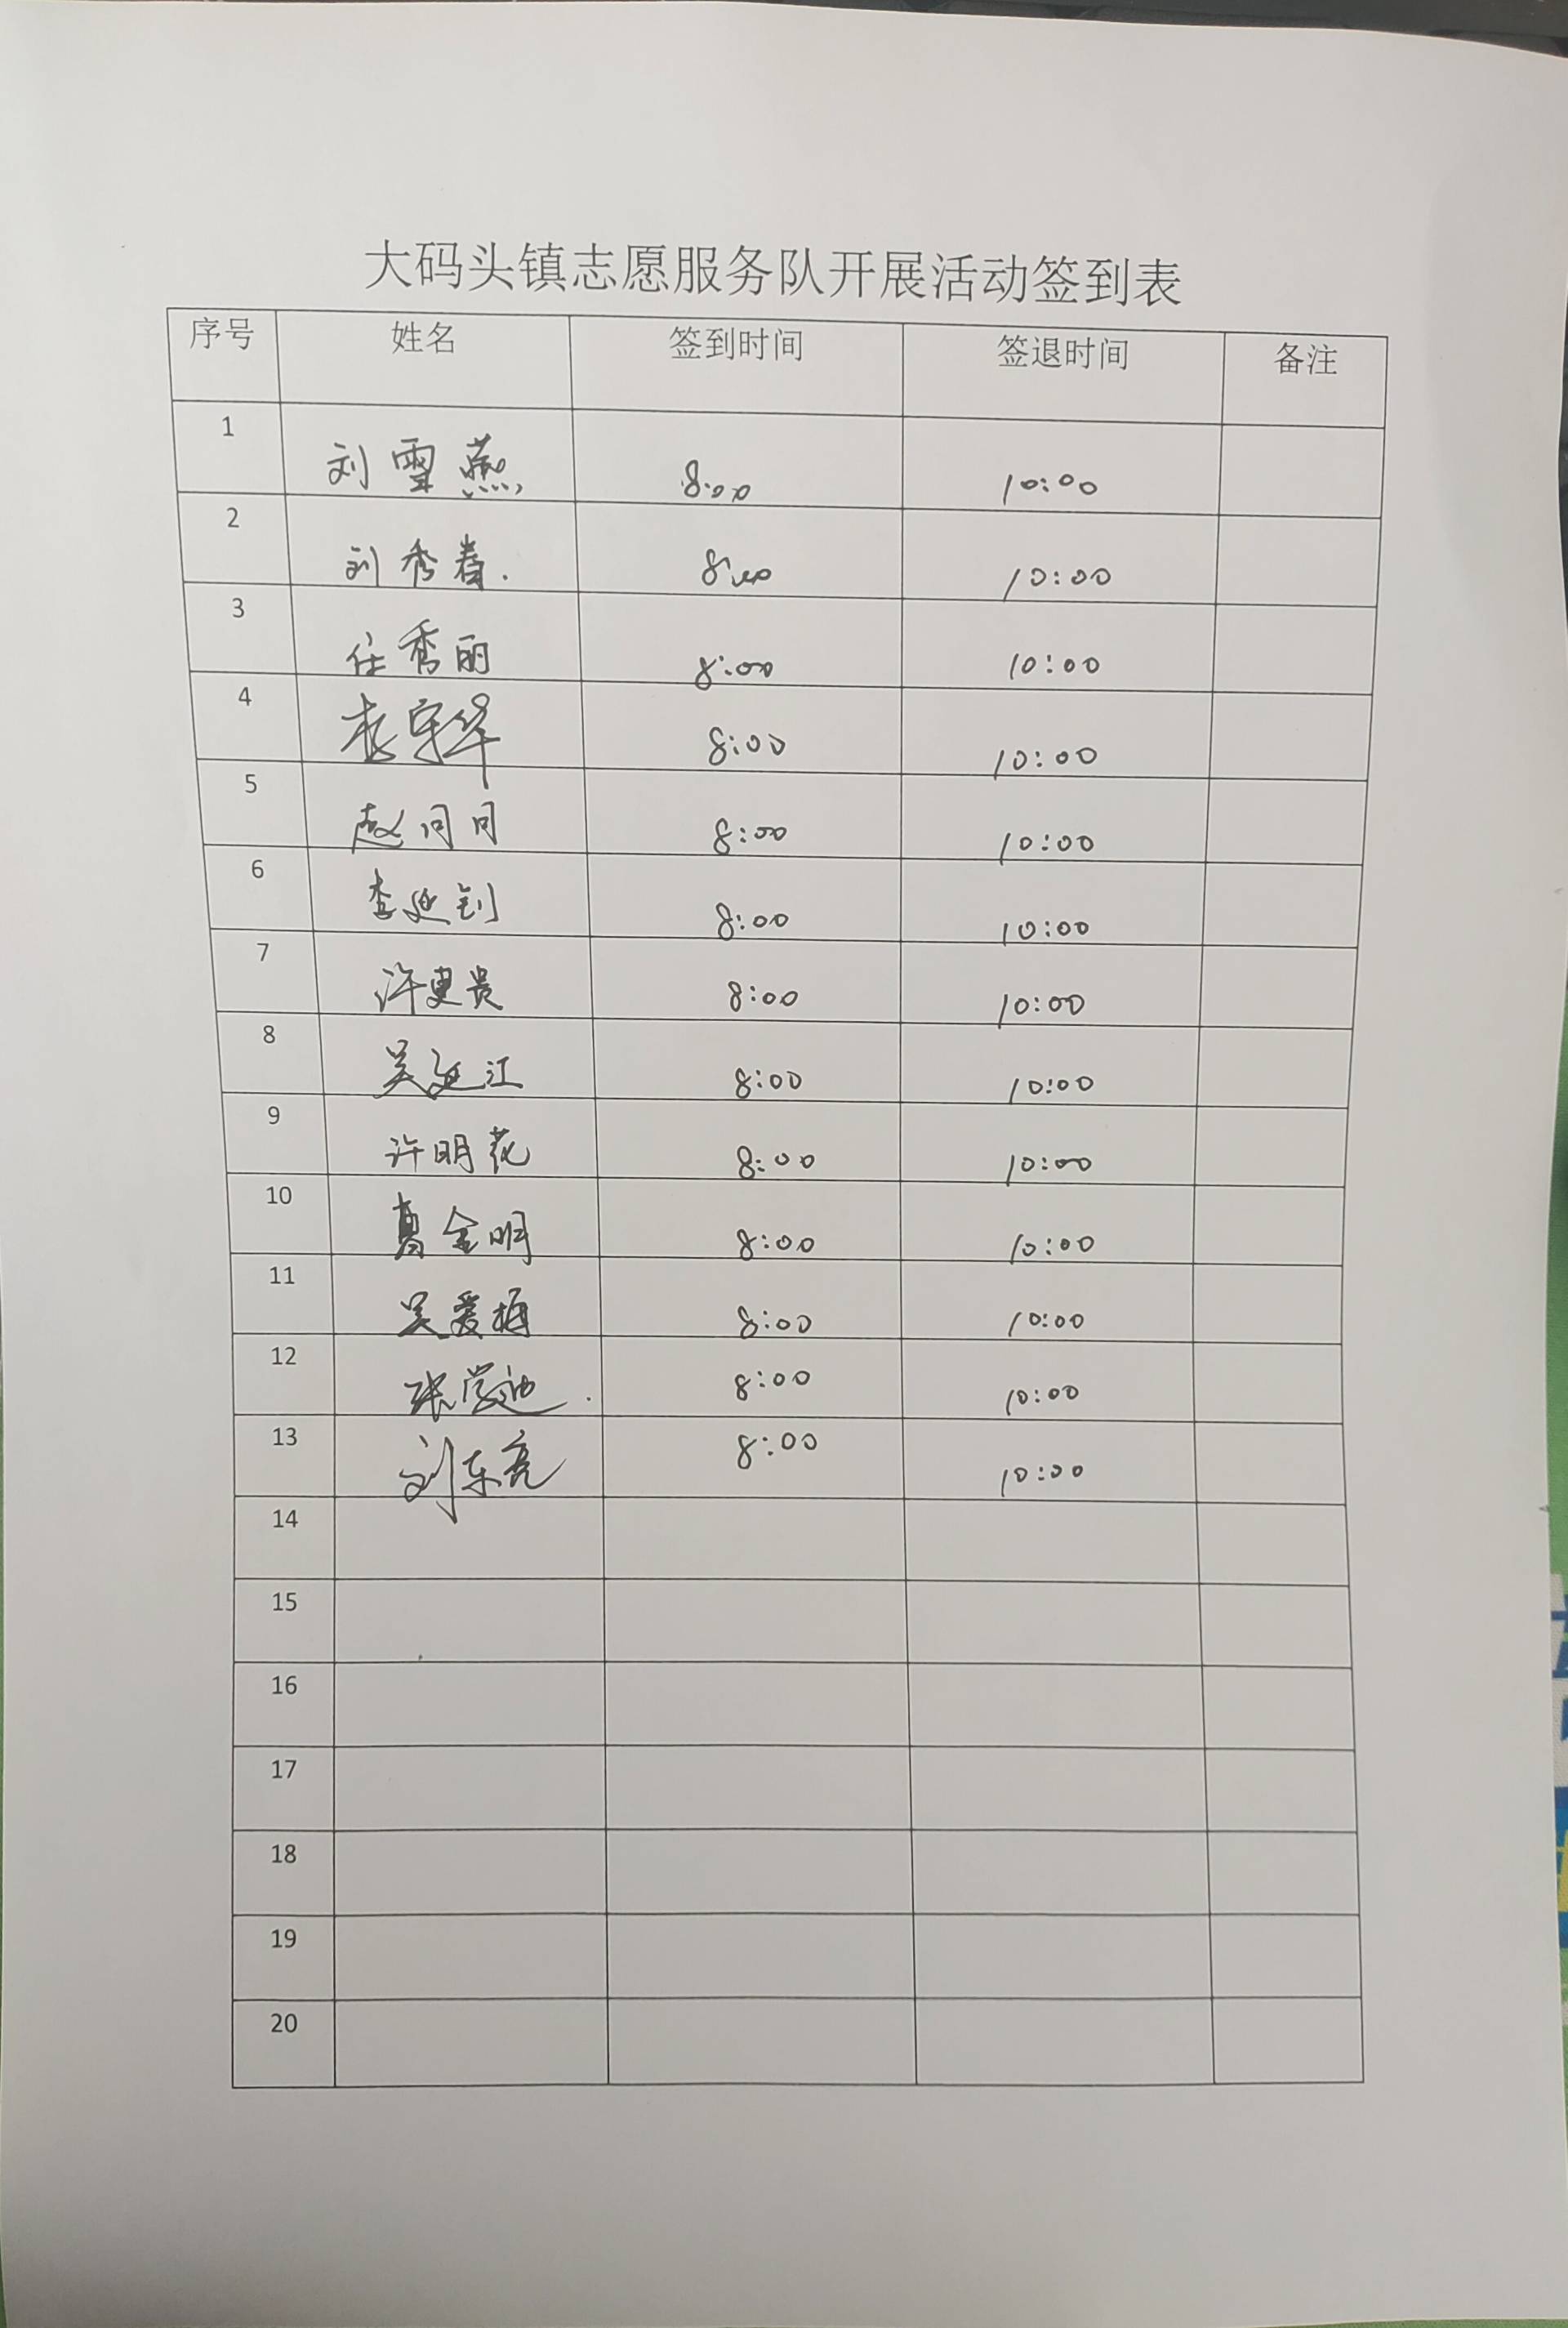 大码头镇志愿服务队开展活动签到表
序号 姓名 签到时间 签退时间 备注
1 刘雪燕 8:00 10:00
2 刘秀春 8:00 10:00
3 任秀丽 8:00 10:00
4 李守华 8:00 10:00
5 赵问问 8:00 10:00
6 李延钊 8:00 10:00
7 许更贵 8:00 10:00
8 吴延江 8:00 10:00
9 许明花 8:00 10:00
10 葛金明 8:00 10:00
11 吴爱梅 8:00 10:00
12 张学迪 8:00 10:00
13 刘东亮 8:00 10:00
14
15
16
17
18
19
20